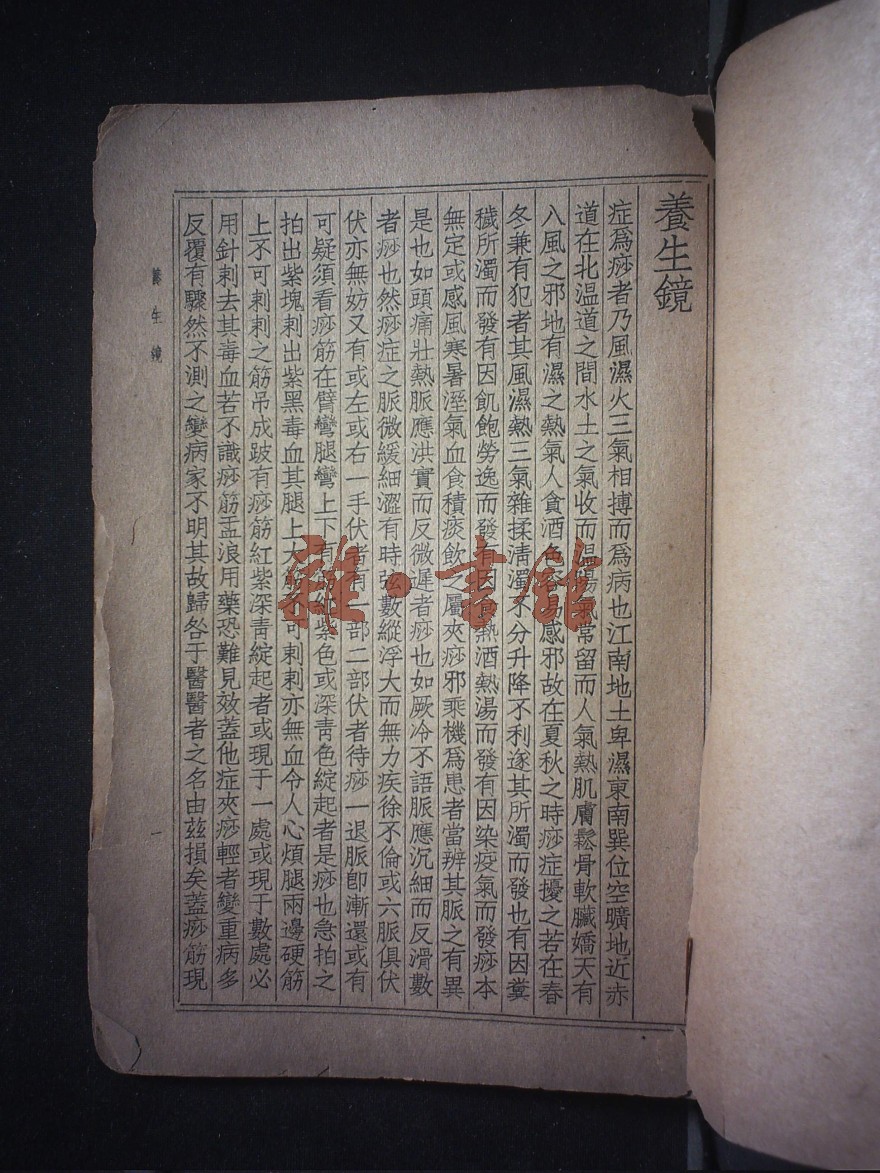 養生鏡
症爲痧者乃風濕火三氣相搏而爲病也江南地土卑濕東南巽位空曠地近赤
道在北温道之間水土之氣收而温蕩氣常留而人氣熱肌膚鬆骨軟臟嬌天有
入風之邪地有濕之熱氣人貪酒色易感邪故在夏秋之時痧症擾之若在春
冬兼有犯者其風濕熱三氣雜揉淸濁不分升降不利遂其所濁而發也有因糞
穢所濁而發有因飢飽勞逸而發有因熱酒熱湯而發有因染疫氣而發痧本
無定或感風寒暑溼氣血食積痰飲之屬夾痧邪乘機爲患者當辨其脈之有異
是也如頭痛壯熱脈應洪實而反微遲者痧也如厥冷不語脈應沉細而反滑數
者痧也然痧症之脈微緩細澀有時弦數縱浮大而無力疾徐不倫或六脈俱伏
伏亦無妨又有或左或右一手伏者有一部二部伏者待痧一退脈卽漸還或有
可疑須看痧筋在臂彎腿彎上下有筋紅紫色或深靑色綻起者是痧也急拍之
拍出紫塊刺出紫黑毒血其腿上大筋不可刺刺亦無血令人心煩腿兩邊硬筋
上不可刺刺之筋吊成跛有痧筋紅紫深靑綻起者或現于一處或現于數處必
用針刺去其毒血若不識痧筋孟浪用藥恐難見效蓋他症夾痧輕者變重病多
反覆有驟然不測之變病家不明其故歸咎于醫醫者之名由茲損矣蓋痧筋現
養生鏡
一
雜·書館